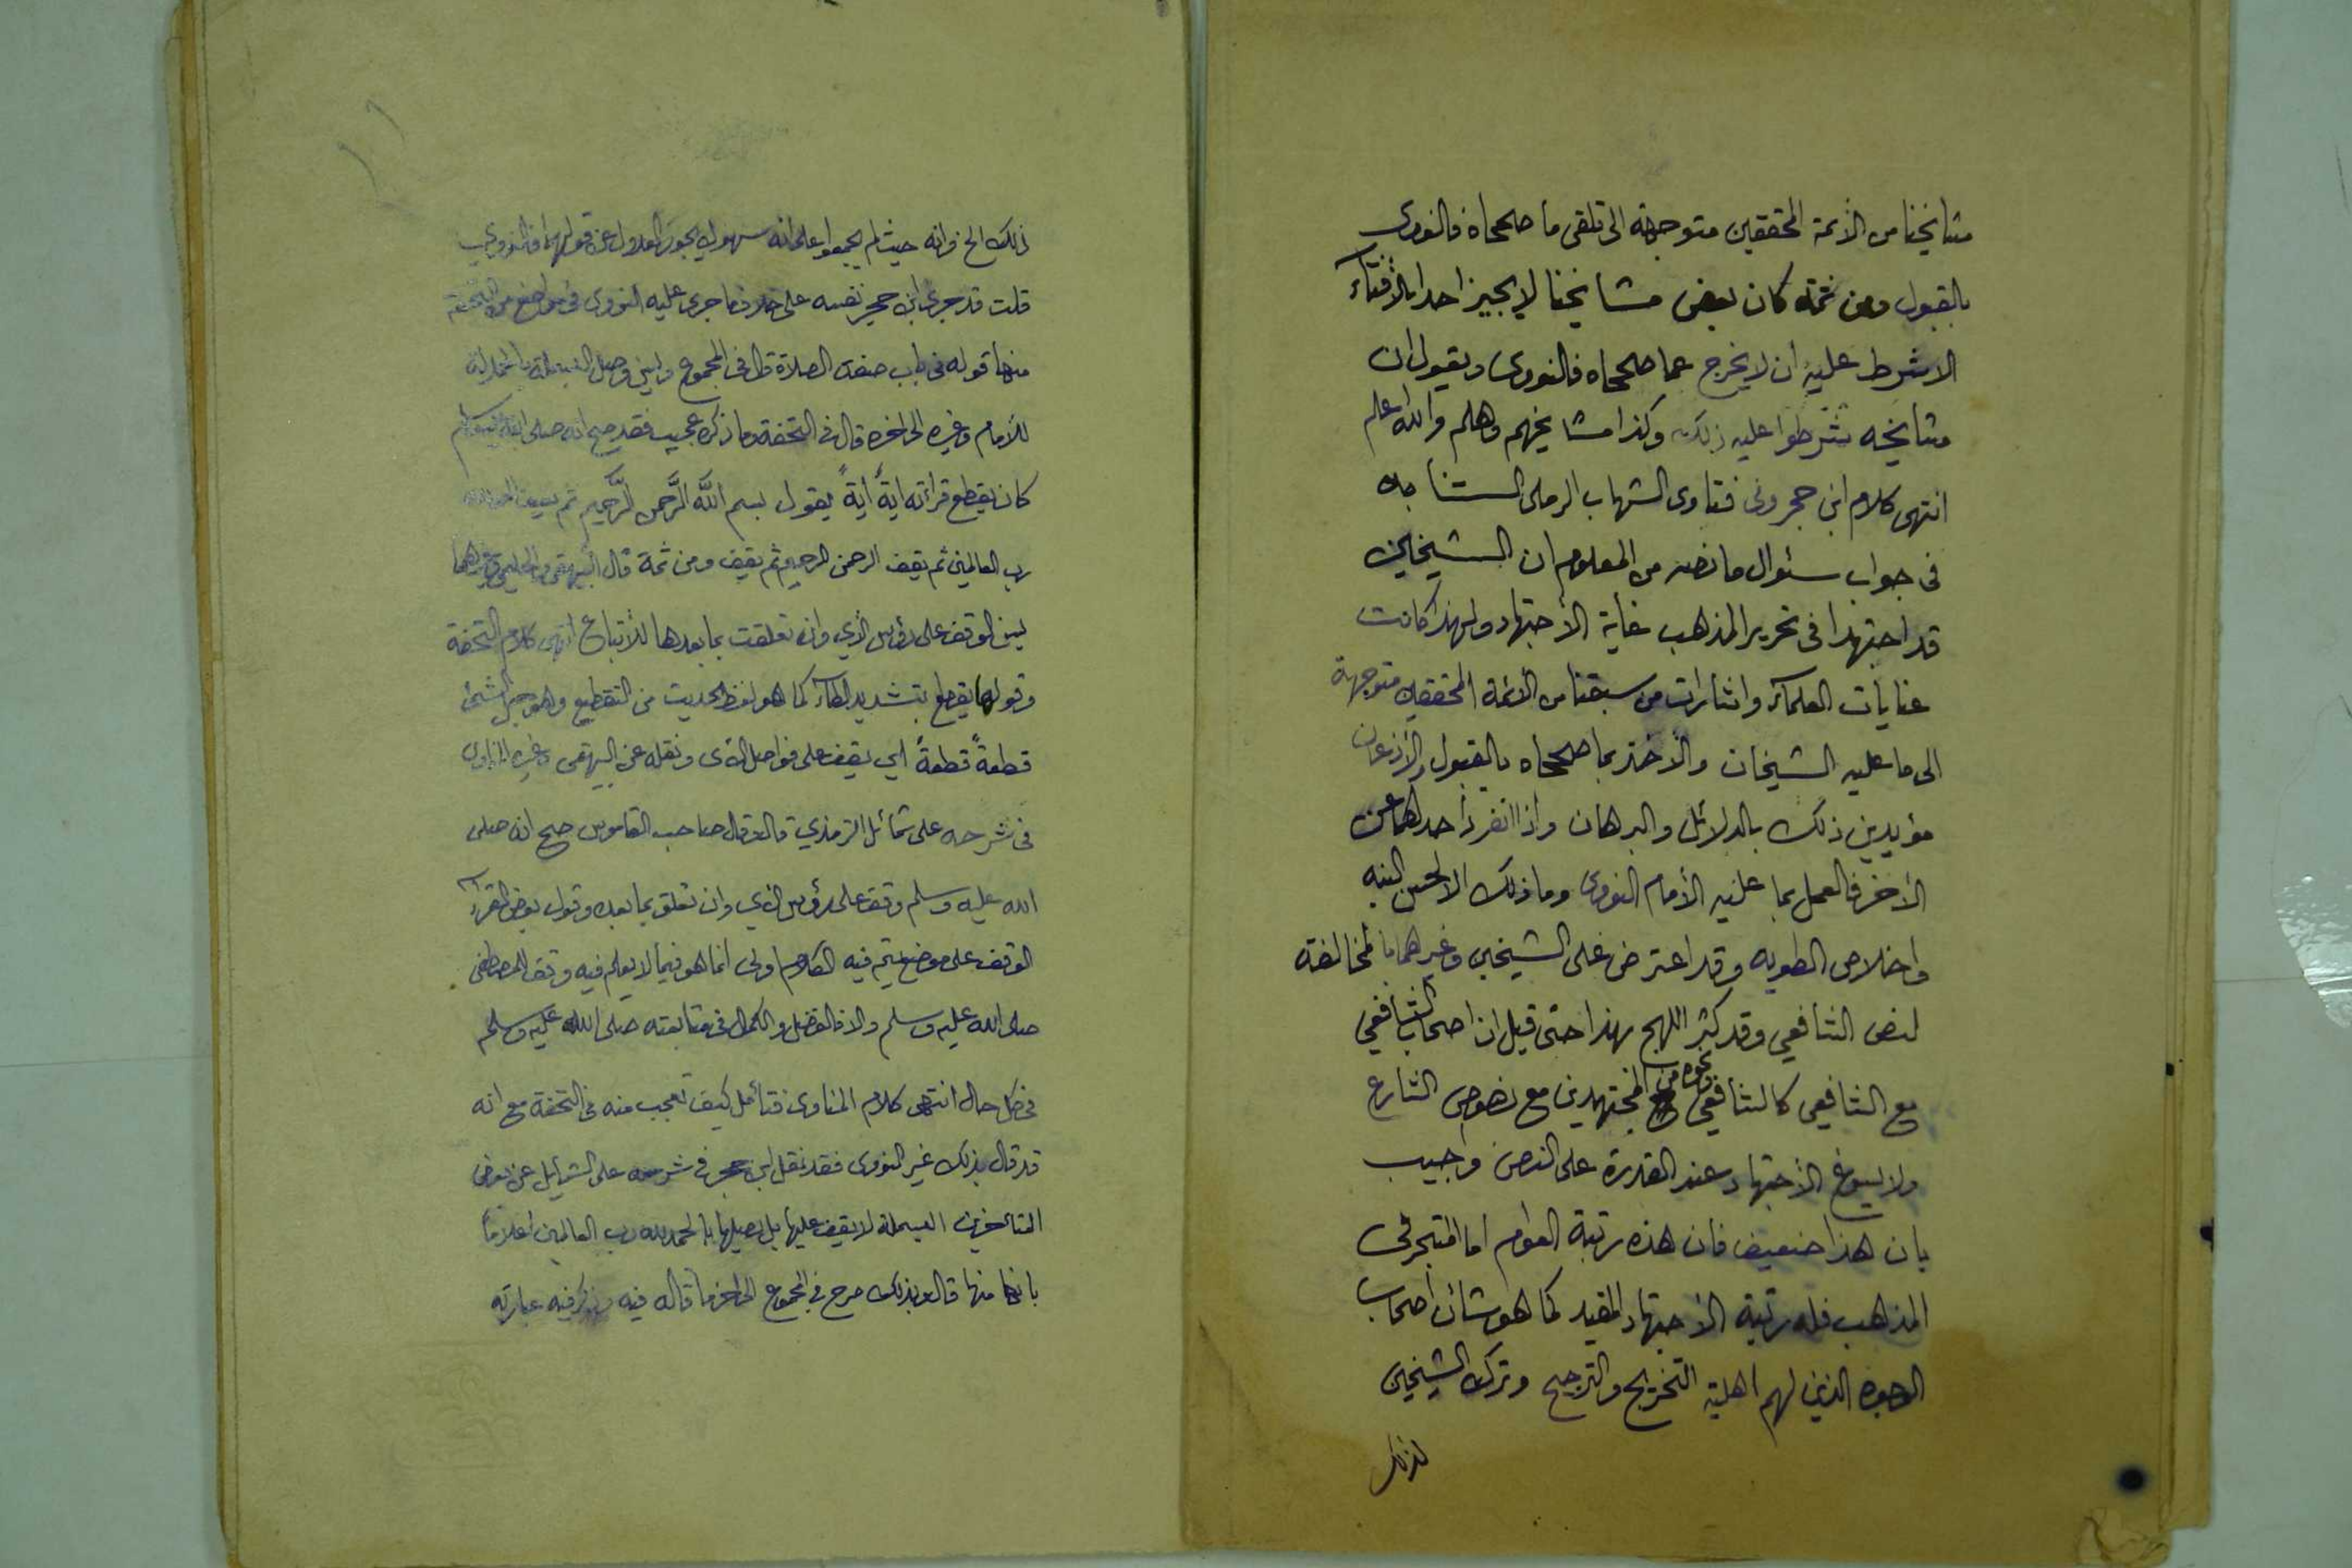 مشايخنا من الأئمة المحققين متوجهة الى تلقى ما صححاه فالنووى
بالقبول ومن ثمة كان بعض مشايخنا لا يجيز احدا بالأفتاء
الا شرط عليه ان لا يخرج عما صححاه فالنووى ويقول ان
مشايخه شرطوا عليه ذلك وكذا مشايخهم وهلم والله اعلم
انتهى كلام ابن حجر وفى فتاوى الشهاب الرملى
فى جواب سئوال ما نصه من المعلوم ان الشيخين
قد اجتهدا فى تحرير المذهب غاية الأجتهاد ولهذا كانت
عنايات العلماء واشارات من سبقنا من الأئمة المحققين متوجهة
الى ما عليه الشيخان والأخذ بما صححاه بالقبول والأذعان
مؤيدين ذلك بالدلائل والبرهان واذا انفرد احدهما عن
الأخر فالعمل بما عليه الأمام النووى وما ذلك الا لحسن النيه
واخلاص الطويه وقد اعترض على الشيخين وغيرهما بالمخالفة
لنص الشافعي وقد كثر اللهج بهذا حتى قيل ان اصحاب الشافعي
مع الشافعي كالشافعي ونحوه من المجتهدين مع نصوص الشارع
ولا يسوغ الأجتهاد عند القدرة على النص واجيب
بان هذا ضعيف فان هذه رتبة العوام اما المتبحر فى
المذهب فله رتبة الأجتهاد المقيد كما هو شأن اصحاب
الوجوه الذين لهم اهلية التخريج والترجيح وترك الشيخين
لذلك
ذلك الخ فانه حيث لم يجمعوا على انه سهو لم يجوز العدول عن قولهما فالنووي
قلت قد جرى ابن حجر نفسه على خلاف ما جرى عليه النووى فى مواضع من التحفة
منها قوله فى باب صفة الصلاة قال فى المجموع ويسن وصل البسملة بالحمدلة
للأمام وغيره الى اخره قال فى التحفة وما ذكره عجيب فقد صح انه صلى الله عليه وسلم
كان يقطع قراءته اية اية يقول بسم الله الرَّحمن الرَّحيم ثم يقف الحمد لله
رب العالمين ثم يقف الرحمن الرحيم ثم يقف ومن ثمة قال البيهقى والحليمى وغيرهما
يسن الوقف على رؤس الآي وان تعلقت بما بعدها للأتباع انتهى كلام التحفة
وقولها يقطع بتشديد الطاء كما هو لفظ الحديث من التقطيع وهو جعل الشئ
قطعةً قطعةً اي يقف على فواصل الآى ونقله عن البيهقى وغيره المناوى
فى شرحه على شمائل الترمذي قال وقال صاحب القاموس صح انه صلى
الله عليه وسلم وقف على رؤس الآي وان تعلق بما بعده وقول بعض القراء
الوقف على موضع يتم فيه الكلام اولى انما هو فيما لا يعلم فيه وقف المصطفى
صلى الله عليه وسلم والا فالفضل والكمال فى متابعته صلى الله عليه وسلم
فى كل حال انتهى كلام المناوى فتأمل كيف تعجب منه فى التحفة مع انه
قد قال بذلك غير النووى فقد نقل ابن حجر فى شرحه على الشمايل عن بعض
المتأخرين البسملة لا يقف عليها بل يصلها بالحمد لله رب العالمين اعلاما
بانها منها قال وبذلك صرح فى المجموع الى اخر ما قاله فيه فيه عبارته